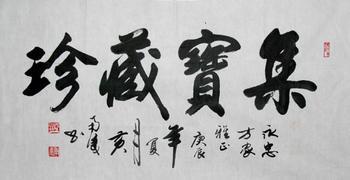 集寶藏珍
永忠
方家
雅正
庚辰
年
夏
月
书